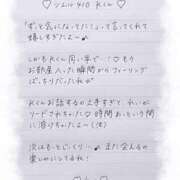 ♡ ソムリエ 410 Kくん ♡
「ずっと気になってた！」って言ってくれて
嬉しすぎたよ〜♪
しかもKくん同い年で…！♡もう
お部屋入った瞬間からフィーリング
ばっちりだったね♡
Kくんお話するの上手すぎて、れいが
リードされちゃった♡時間あっという間
に溶けちゃった〜(笑)
次はもっとじっくり…♪また会えるの
楽しみにしてるね！